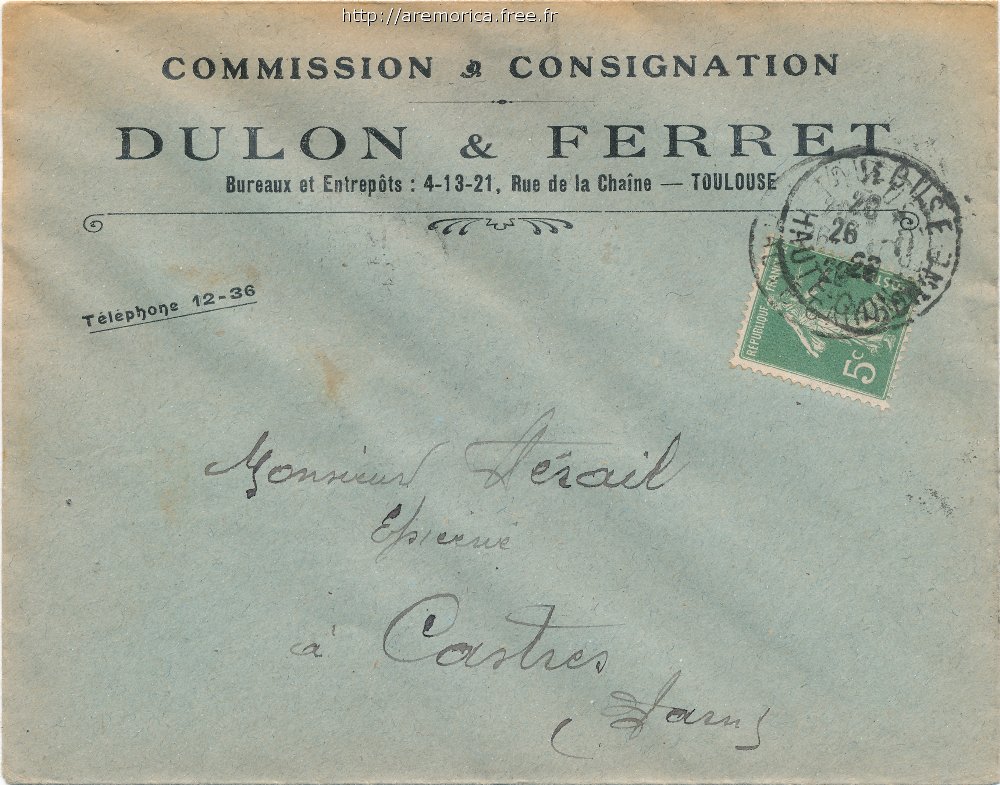 http://aremorica.free.fr
COMMISSION & CONSIGNATION
DULON & FERRET
Bureaux et Entrepôts : 4-13-21, Rue de la Chaîne — TOULOUSE
TOULOUSE
HAUTE-GARONNE
26
Téléphone 12-36
REPUBLIQUE FRANÇ
5c
Monsieur Hérail
Epicerie
à Castres
(Tarn)